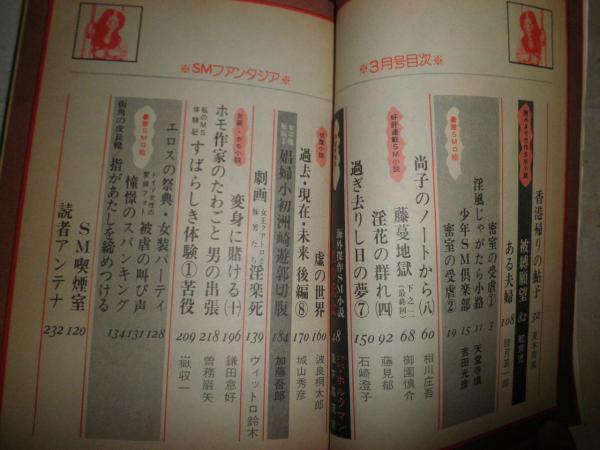 ※3月号目次※
香港帰りの鮎子 32
被縛願望 82
ある夫婦 108
密室の受虐① 3
淫風じゃがたら小路 11 天堂寺慎
少年SM倶楽部 15 吉田光彦
密室の受虐② 19
尚子のノートから(八) 60 相川庄吾
好評連載SM小説
藤蔓地獄 下之二(最終回) 68 御園慎介
淫花の群れ(四) 92 藤見郁
過ぎ去りし日の夢⑦ 150 石崎澄子
海外傑作SM小説
48
※SMファンタジア※
虚の世界 160 波良桐太郎
過去・現在・未来 後編⑧ 170 城山秀彦
娼婦小初洲崎遊郭切腹 184 加藤吾郎
劇画 淫楽死 139 ヴィットロ鈴木
女装・ホモ小説
変身に賭ける(十) 196 鎌田意好
ホモ作家のたわごと 男の出張 218 曽務巌矢
私のMS体験記
すばらしき体験①苦役 209 嶽収一
エロスの祭典・女装パーティ 128
被虐の叫び声 131
憧憬のスパンキング
街角の皮長靴 指があたしを締めつける 134
SM喫煙室 120
読者アンテナ 232